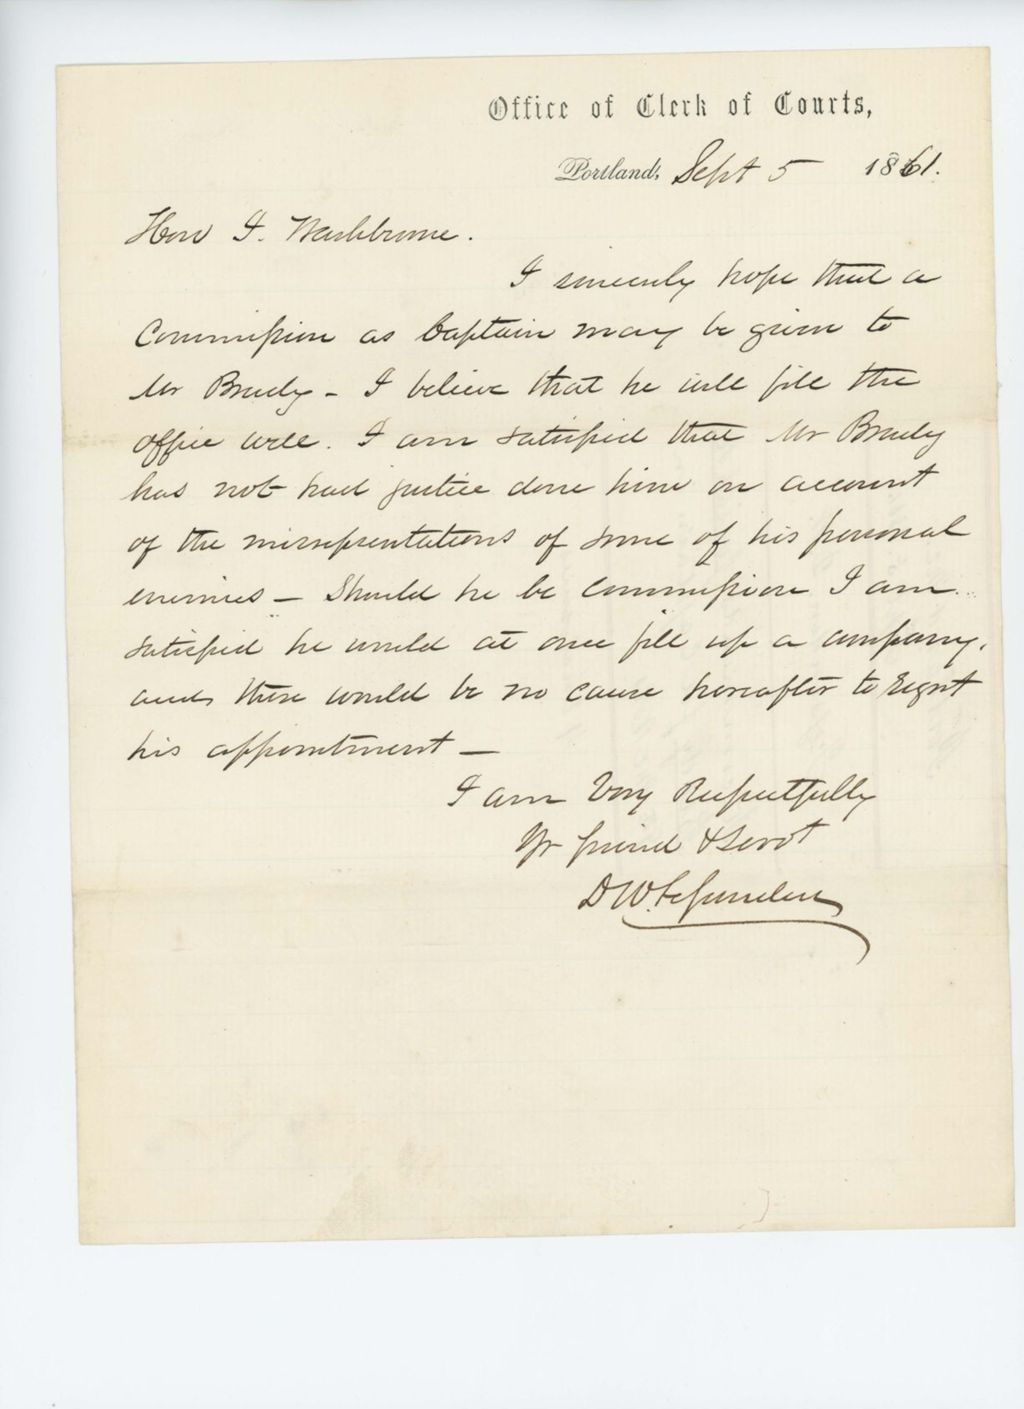 Office of Clerk of Courts,
Portland, Sept 5 1861.
Hon I. Washburne.
I sincerely hope that a
Commission as Captain may be given to
Mr Brady - I believe that he will fill the
office well. I am satisfied that Mr Brady
has not had justice done him on account
of the misrepresentations of some of his personal
enemies — Should he be commission I am
satisfied he would at once fill up a company,
and there would be no cause hereafter to regret
his appointment —
I am Very Respectfully
Yr friend & Servt
D W Fessenden